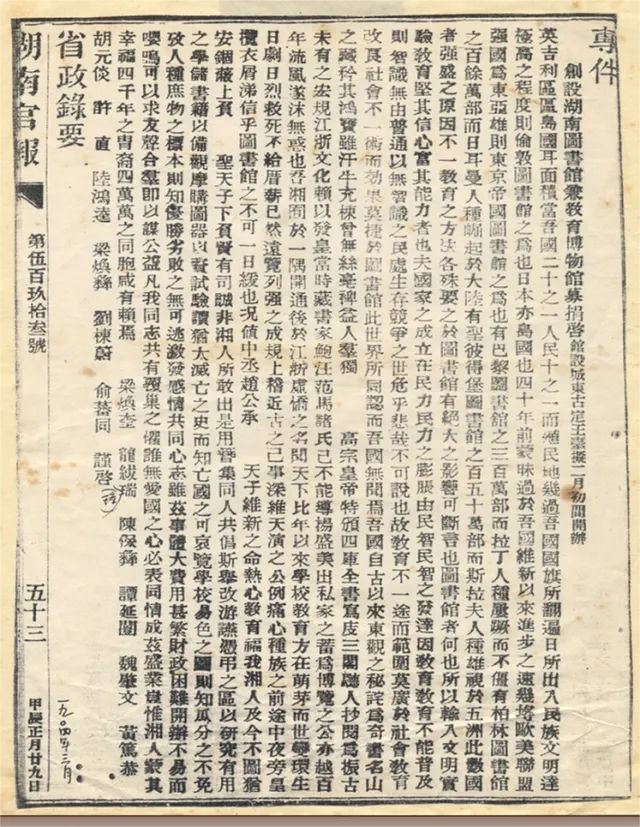 專件
創設湖南圖書館兼教育博物館募捐啓 館設城東古定王臺擬二月初間開辦
英吉利區區島國耳面積當吾國二十之一人民十之一而殖民地幾過吾國國旗所翻遍日所出入民族文明達
極高之程度則倫敦圖書館之爲也日本亦島國也四十年前蒙昧過於吾國維新以來進步之速幾埒歐美聯盟
强國爲東亞雄則東京帝國圖書館之爲也有巴黎圖書館之三百萬部而拉丁人種屢蹶而不僵有柏林圖書館
之百餘萬部而日耳曼人種崛起於大陸有聖彼得堡圖書館之百五十萬部而斯拉夫人種雄視於五洲此數國
者强盛之原因不一教育之方法各殊要之於圖書館有絕大之影響可斷言也圖書館者何也所以輸入文明實
驗教育堅其信心富其能力者也夫國家之成立在民力民力之膨脹由民智民智之發達因教育教育不能普及
則智識無由普通以無智識之民處生存競爭之世危乎悲哉不可說也故教育不一途而範圍莫廣於社會教育
改良社會不一術而効果莫捷於圖書館此世界所同認而吾國無聞焉吾國自古以來東觀之秘詫爲奇書名山
之藏矜其鴻寶雖汗牛充棟曾無絲毫裨益人羣獨 高宗皇帝特頒四庫全書寫皮三閣聽人抄閱爲振古
未有之宏規江浙文化賴以發皇當時藏書家鮑汪范馬諸氏已不能導揚盛美出私家之蓄爲博覽之公亦越百
年流風遂沫無惑也吾湘囿於一隅開通後於江浙虛憍之名聞天下比年以來學校教育方在萌芽而世變環生
日劇日烈救死不給厝薪已然遠覽列强之成規上稽近古之已事深維天演之公例痛心種族之前途中夜旁皇
攬衣屑涕信乎圖書館之不可一日緩也況值中丞趙公承 天子維新之命熱心教育福我湘人及今不圖猶
安錮蔽上負 聖天子下負賢有司誠非湘人所敢出是用集同人共倡斯舉改游讌憑弔之區以研究有用
之學儲書籍以備觀摩購圖器以資試驗讀猶太滅亡之史而知亡國之可哀覽學校易色之圖則知瓜分之不免
攷人種庶物之標本則知優勝劣敗之無可逃激發感情共同心志雖茲事體大費用甚繁財政困難開辦不易而
嚶鳴可以求友聲合羣即以謀公益凡我同志共有覆巢之懼誰無愛國之心必表同情成茲盛業豈惟湘人蒙其
幸福四千年之胄裔四萬萬之同胞咸有賴焉 梁煥奎 龍紱瑞 陳保彝 譚延闓 魏肇文 黃篤恭
胡元倓 許直 陸鴻逵 梁煥彝 劉棟蔚 俞蕃同 謹啓
一九〇四年三月
省政錄要
湖南官報 第伍百玖拾叁號 五十三 甲辰正月廿九日